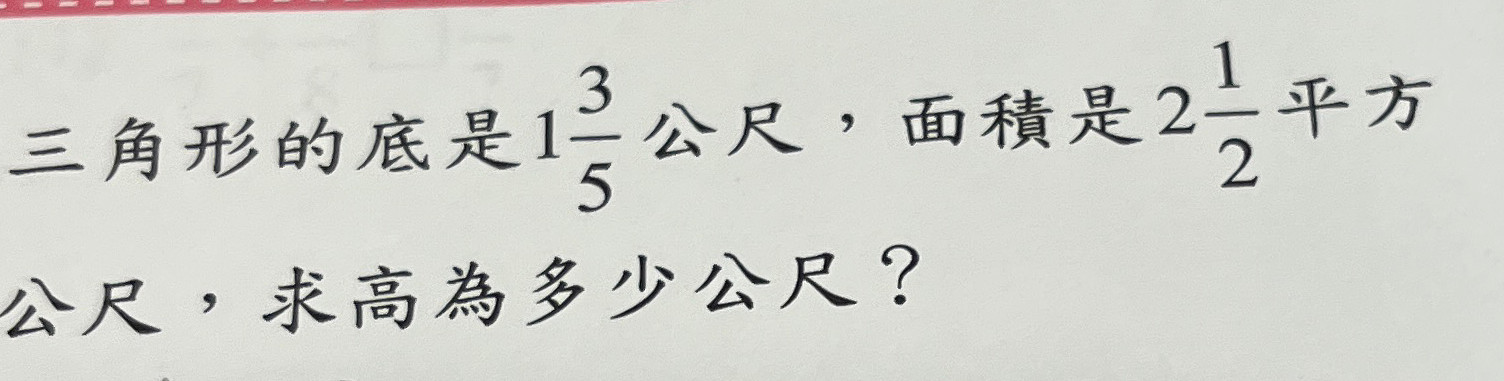 三角形的底是1 3/5公尺，面積是2 1/2平方
公尺，求高為多少公尺？